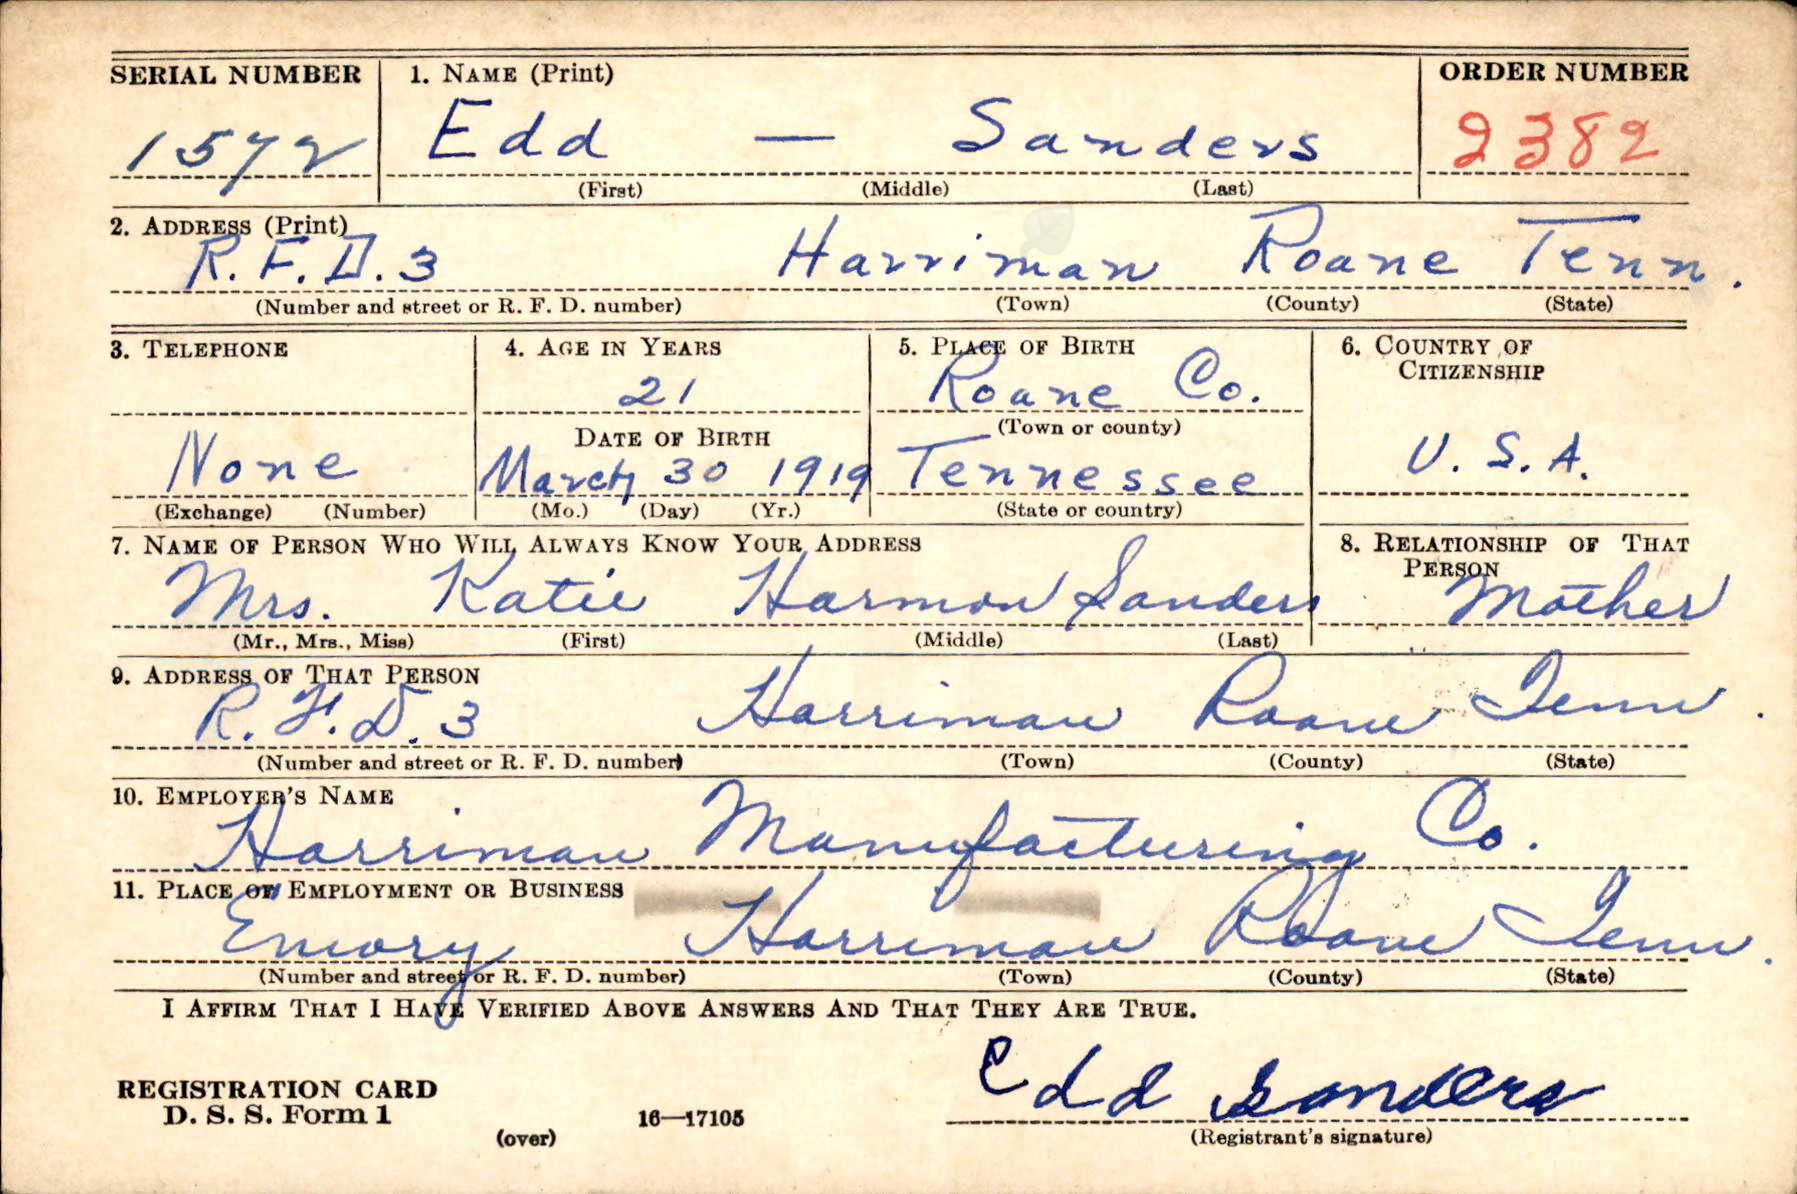 SERIAL NUMBER 1. NAME (Print) ORDER NUMBER
1572 Edd — Sanders 2382
(First) (Middle) (Last)
2. ADDRESS (Print)
R. F. D. 3 Harriman Roane Tenn.
(Number and street or R. F. D. number) (Town) (County) (State)
3. TELEPHONE 4. AGE IN YEARS 5. PLACE OF BIRTH 6. COUNTRY OF
CITIZENSHIP
21 Roane Co.
DATE OF BIRTH (Town or county)
None March 30 1919 Tennessee U. S. A.
(Exchange) (Number) (Mo.) (Day) (Yr.) (State or country)
7. NAME OF PERSON WHO WILL ALWAYS KNOW YOUR ADDRESS 8. RELATIONSHIP OF THAT
PERSON
Mrs. Katie Harmon Sanders Mother
(Mr., Mrs., Miss) (First) (Middle) (Last)
9. ADDRESS OF THAT PERSON
R. F. D. 3 Harriman Roane Tenn.
(Number and street or R. F. D. number) (Town) (County) (State)
10. EMPLOYER'S NAME
Harriman Manufacturing Co.
11. PLACE OF EMPLOYMENT OR BUSINESS
Emory Harriman Roane Tenn.
(Number and street or R. F. D. number) (Town) (County) (State)
I AFFIRM THAT I HAVE VERIFIED ABOVE ANSWERS AND THAT THEY ARE TRUE.
Edd Sanders
REGISTRATION CARD
D. S. S. Form 1 16—17105
(over) (Registrant's signature)